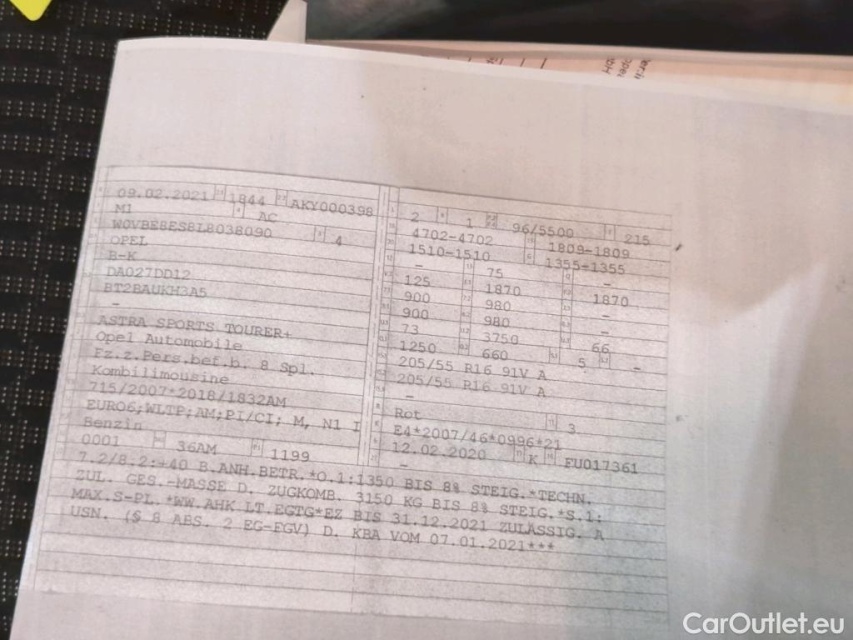 09.02.2021 1844 AKY000398
M1 AC
W0VBE8ES8L8038090 4
OPEL
B-K
DA027DD12
BT2BAUKH3A5
-
ASTRA SPORTS TOURER+
Opel Automobile
Fz.z.Pers.bef.b. 8 Spl.
Kombilimousine
715/2007*2018/1832AM
EURO6;WLTP;AM;PI/CI; M, N1 I
Benzin
0001 36AM 1199
2 1 96/5500 215
4702-4702 1809-1809
1510-1510 1355-1355
- 75 -
125 1870 1870
900 980 -
900 980 -
73 3750 66
1250 660 5 -
205/55 R16 91V A
205/55 R16 91V A
-
Rot 3
E4*2007/46*0996*21
12.02.2020 K FU017361
-
7.2/8.2:-40 B.ANH.BETR.*O.1:1350 BIS 8% STEIG.*TECHN.
ZUL. GES.-MASSE D. ZUGKOMB. 3150 KG BIS 8% STEIG.*S.1:
MAX.S-PL.*WW.AHK LT.EGTG*EZ BIS 31.12.2021 ZULÄSSIG. A
USN. (§ 8 ABS. 2 EG-FGV) D. KBA VOM 07.01.2021***
CarOutlet.eu